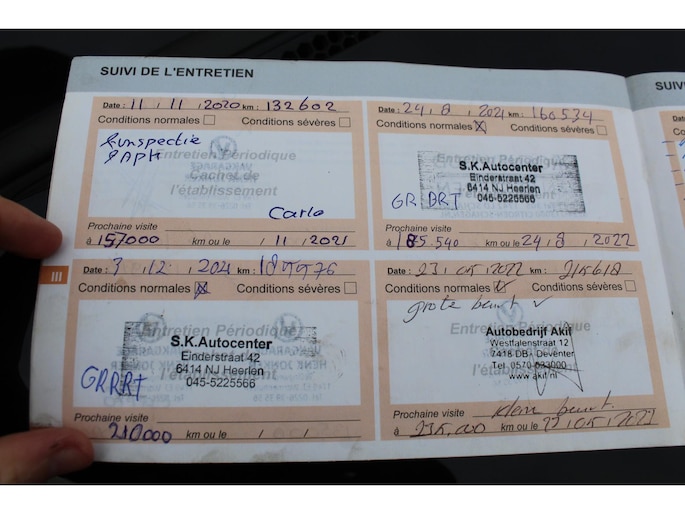 SUIVI DE L'ENTRETIEN
SUIV
Date : 11 / 11 / 2020 km : 132602
Conditions normales Conditions sévères
APK
Entretien Périodique
Cachet de
l'établissement
Carlo
Prochaine visite
à 157000 km ou le / 11 / 2021
Date : 24 / 8 / 2021 km : 160534
Conditions normales X Conditions sévères
S.K.Autocenter
Einderstraat 42
6414 NJ Heerlen
045-5225566
GR BRT
Prochaine visite
à 185.540 km ou le 24 / 8 / 2022
III
Date : 3 / 12 / 2021 km :
Conditions normales X Conditions sévères
Entretien Périodique
S.K.Autocenter
Einderstraat 42
6414 NJ Heerlen
045-5225566
l'établissement
GRBRT
Prochaine visite
210000 km ou le / /
Date : 23 / 05 / 2022 km : 215618
Conditions normales Conditions sévères
grote beurt ✓
Entretien Périodique
Autobedrijf Akif
Westfalenstraat 12
7418 DB Deventer
Tel. 0570-633000
www.akif.nl
Prochaine visite klein beurt.
à 235.000 km ou le 05